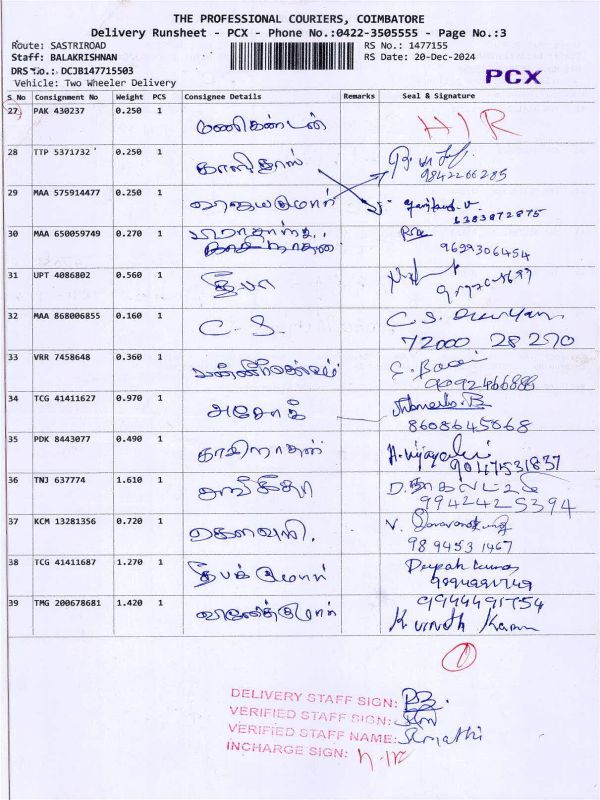 THE PROFESSIONAL COURIERS, COIMBATORE
Delivery Runsheet - PCX - Phone No.:0422-3505555 - Page No.:3
Route: SASTRIROAD
RS No.: 1477155
Staff: BALAKRISHNAN
RS Date: 20-Dec-2024
DRS No.: DCJB147715503
PCX
Vehicle: Two Wheeler Delivery
S No Consignment No Weight PCS Consignee Details Remarks Seal & Signature
27 PAK 430237 0.250 1 மணிகண்டன் H/R
28 TTP 5371732 0.250 1 காளிதாஸ்
9842266285
29 MAA 575914477 0.250 1 விஜயகுமார்
6383872875
30 MAA 650059749 0.270 1
9699306454
31 UPT 4086802 0.560 1 தீபா
32 MAA 868006855 0.160 1 C.S. C.S.
72000 28270
33 VRR 7458648 0.360 1
34 TCG 41411627 0.970 1 அசோக்
8608645068
35 PDK 8443077 0.490 1 காசிநாதன்
9047531837
36 TNJ 637774 1.610 1 சங்கீதா
9942425394
37 KCM 13281356 0.720 1 கௌவரி.
98 9453 1467
38 TCG 41411687 1.270 1 தீபக் குமார் Deepak kumar
39 TMG 200678681 1.420 1 வினோத்குமார் 9944491754
K Vinoth Kumar
1
DELIVERY STAFF SIGN:
VERIFIED STAFF SIGN:
VERIFIED STAFF NAME:
INCHARGE SIGN: